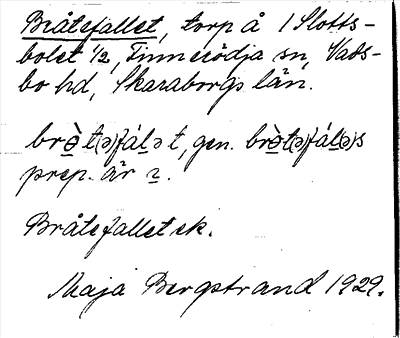 Bråtefallet, torp å 1 Slotts-
bolet ½, Finnerödja sn, Vads-
bo hd, Skaraborgs län.
brò̱t(ə)fáḻət, gen. brò̱t(ə)fáḻ(ə)s
prep. är
Bråtefallet ek.
Maja Bergstrand 1929.